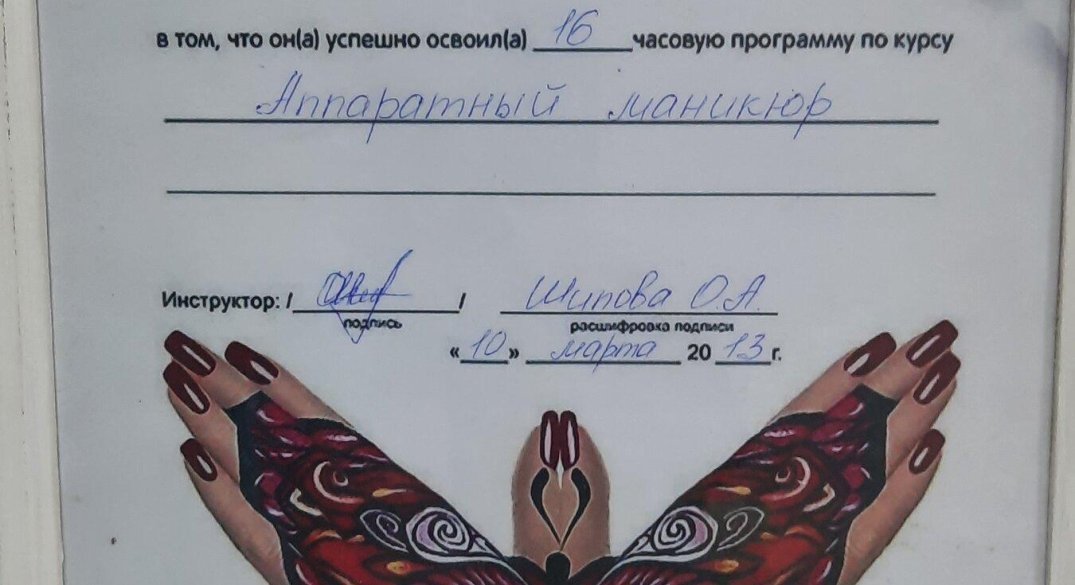 в том, что он(а) успешно освоил(а) 16 часовую программу по курсу
Аппаратный маникюр
Инструктор: / / Шипова О.А.
подпись расшифровка подписи
« 10 » марта 20 13 г.